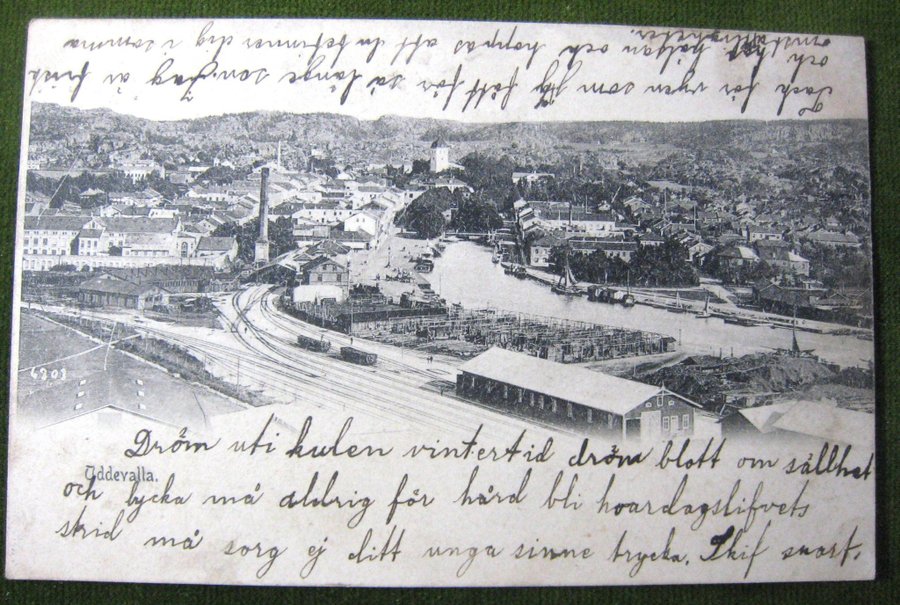 Tack för vyen som jg fått för så länge sen. Jag är frisk
och hälsan och hoppas att du befinner dig i samma
omständigheter.
6303
Dröm uti kulen vintertid dröm blott om sällhet
Uddevalla.
och lycka må aldrig för hård bli hvardagslifvets
skrid må sorg ej ditt unga sinne trycka. Skif snart.